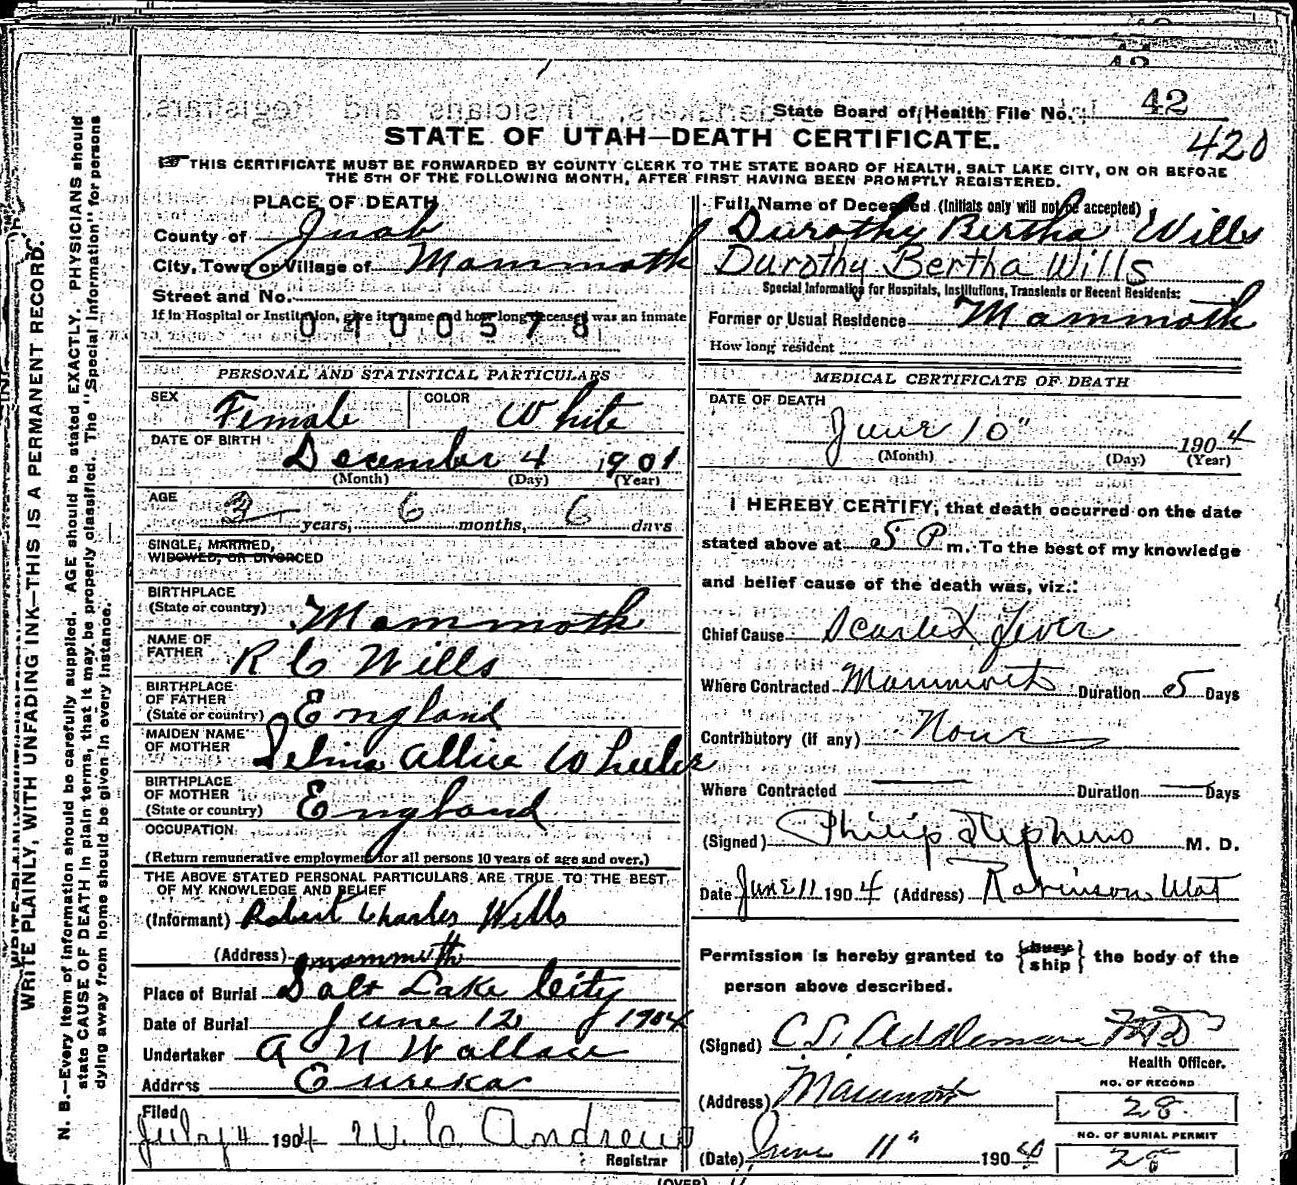 State Board of Health File No. 42
420
STATE OF UTAH—DEATH CERTIFICATE.
THIS CERTIFICATE MUST BE FORWARDED BY COUNTY CLERK TO THE STATE BOARD OF HEALTH, SALT LAKE CITY, ON OR BEFORE
THE 5TH OF THE FOLLOWING MONTH, AFTER FIRST HAVING BEEN PROMPTLY REGISTERED.
WRITE PLAINLY, WITH UNFADING INK—THIS IS A PERMANENT RECORD.
N. B.—Every item of information should be carefully supplied. AGE should be stated EXACTLY. PHYSICIANS should
state CAUSE OF DEATH in plain terms, that it may be properly classified. The "Special Information" for persons
dying away from home should be given in every instance.
PLACE OF DEATH
County of Juab
City, Town or Village of Mammoth
Street and No.
If in Hospital or Institution, give its name and how long deceased was an inmate
0400578
PERSONAL AND STATISTICAL PARTICULARS
SEX Female COLOR White
DATE OF BIRTH December 4 1901
(Month) (Day) (Year)
AGE years, 6 months, 6 days
SINGLE, MARRIED,
WIDOWED, OR DIVORCED
BIRTHPLACE
(State or country) Mammoth
NAME OF
FATHER R C Wills
BIRTHPLACE
OF FATHER
(State or country) England
MAIDEN NAME
OF MOTHER Selina Allice Wheeler
BIRTHPLACE
OF MOTHER
(State or country) England
OCCUPATION
(Return remunerative employment for all persons 10 years of age and over.)
THE ABOVE STATED PERSONAL PARTICULARS ARE TRUE TO THE BEST
OF MY KNOWLEDGE AND BELIEF
(Informant) Robert Charles Wills
(Address) Mammoth
Place of Burial Salt Lake City
Date of Burial June 12 1904
Undertaker A N Wallace
Address Eureka
Filed
July 4 1904 W. C Andrews
Registrar
Full Name of Deceased (Initials only will not be accepted)
Durothy Bertha Wills
Durothy Bertha Wills
Special Information for Hospitals, Institutions, Transients or Recent Residents:
Former or Usual Residence Mammoth
How long resident
MEDICAL CERTIFICATE OF DEATH
DATE OF DEATH
June 10" 1904
(Month) (Day) (Year)
I HEREBY CERTIFY, that death occurred on the date
stated above at 5 P m. To the best of my knowledge
and belief cause of the death was, viz.:
Chief Cause Scarlet Fever
Where Contracted Mammoth Duration 5 Days
Contributory (if any) None
Where Contracted Duration Days
(Signed) Philip Stephens M. D.
Date June 11 1904 (Address) Robinson, Utat
Permission is hereby granted to {bury ship} the body of the
person above described.
(Signed) C. S. Addleman MD
Health Officer.
(Address) Mammoth
(Date) June 11" 1904
NO. OF RECORD
28
NO. OF BURIAL PERMIT
28
(OVER)